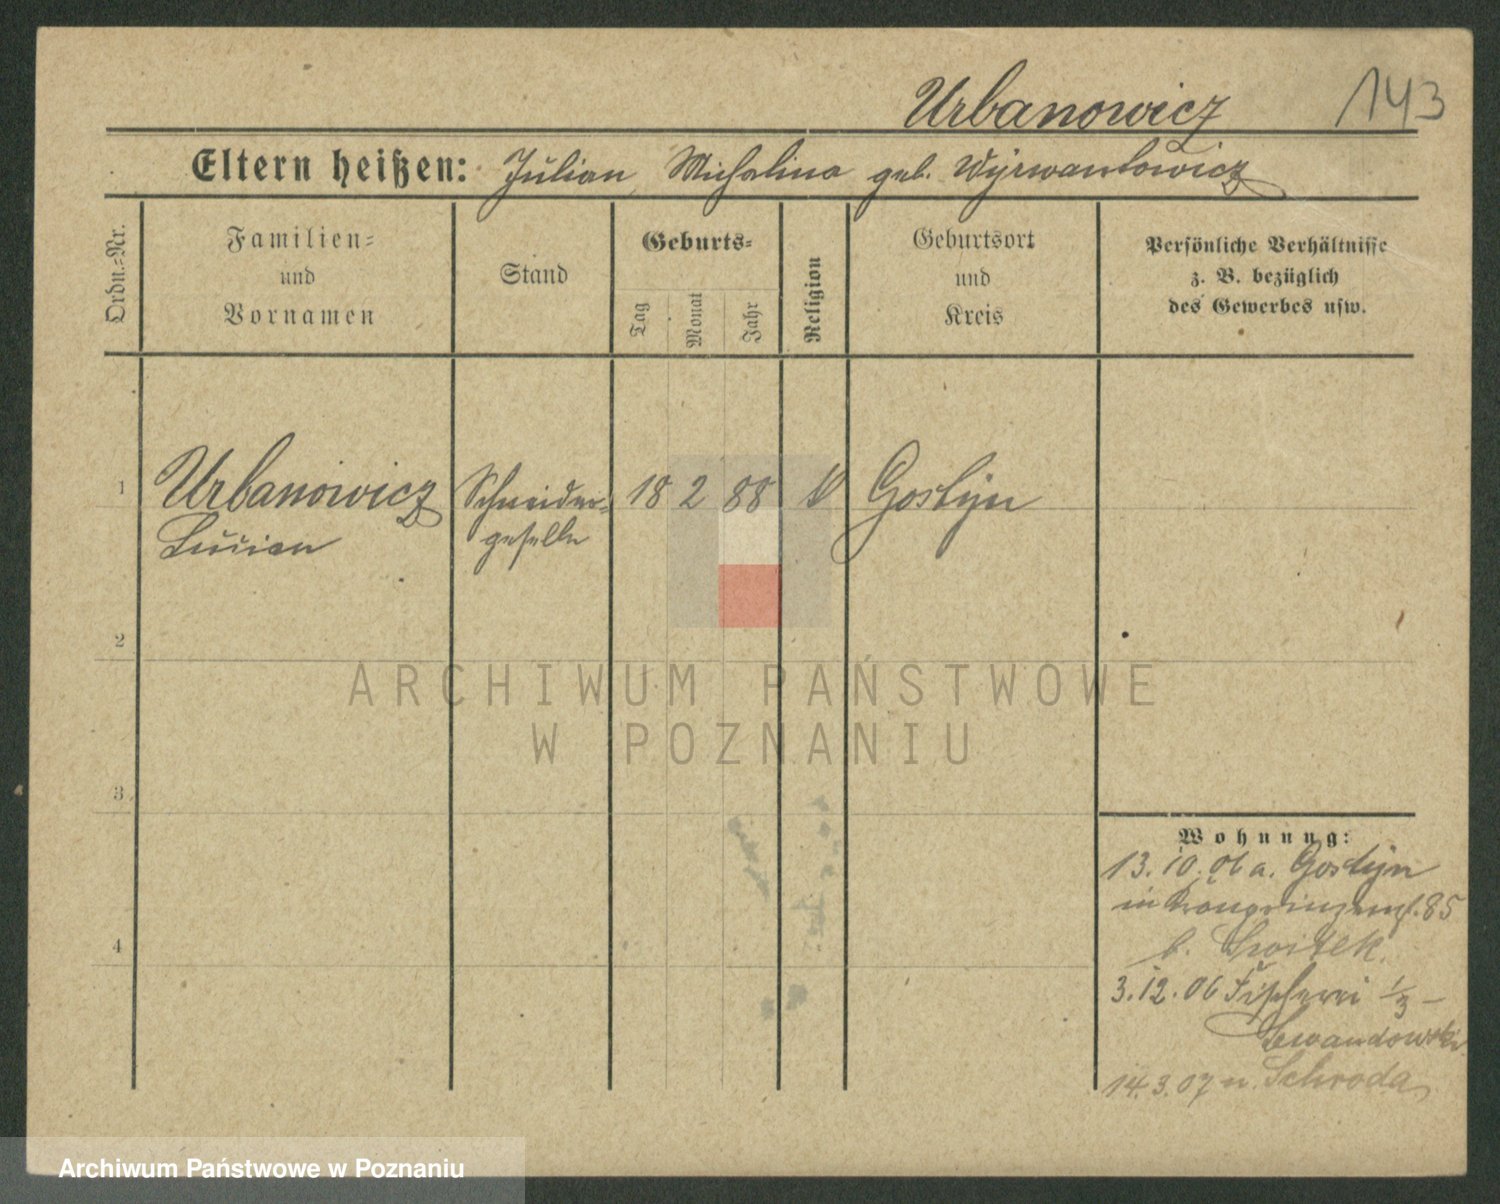 Urbanowicz 143
Eltern heißen: Julian, Michalina geb. Wyrwantowicz
Ordn.-Nr.
Familien- und Vornamen
Stand
Geburts-
Tag
Monat
Jahr
Religion
Geburtsort und Kreis
Persönliche Verhältnisse
z. B. bezüglich
des Gewerbes usw.
1 Urbanowicz Schneider- 18 2 88 Gostyn
Lucian geselle
2
3
4
Wohnung:
13.10.06 a. Gostyn
in Kronprinzenst. 85
b. Switek
3.12.06 Fischerei 1/3 -
Lewandowski
14.3.07 n. Schroda
ARCHIWUM PAŃSTWOWE
W POZNANIU
Archiwum Państwowe w Poznaniu